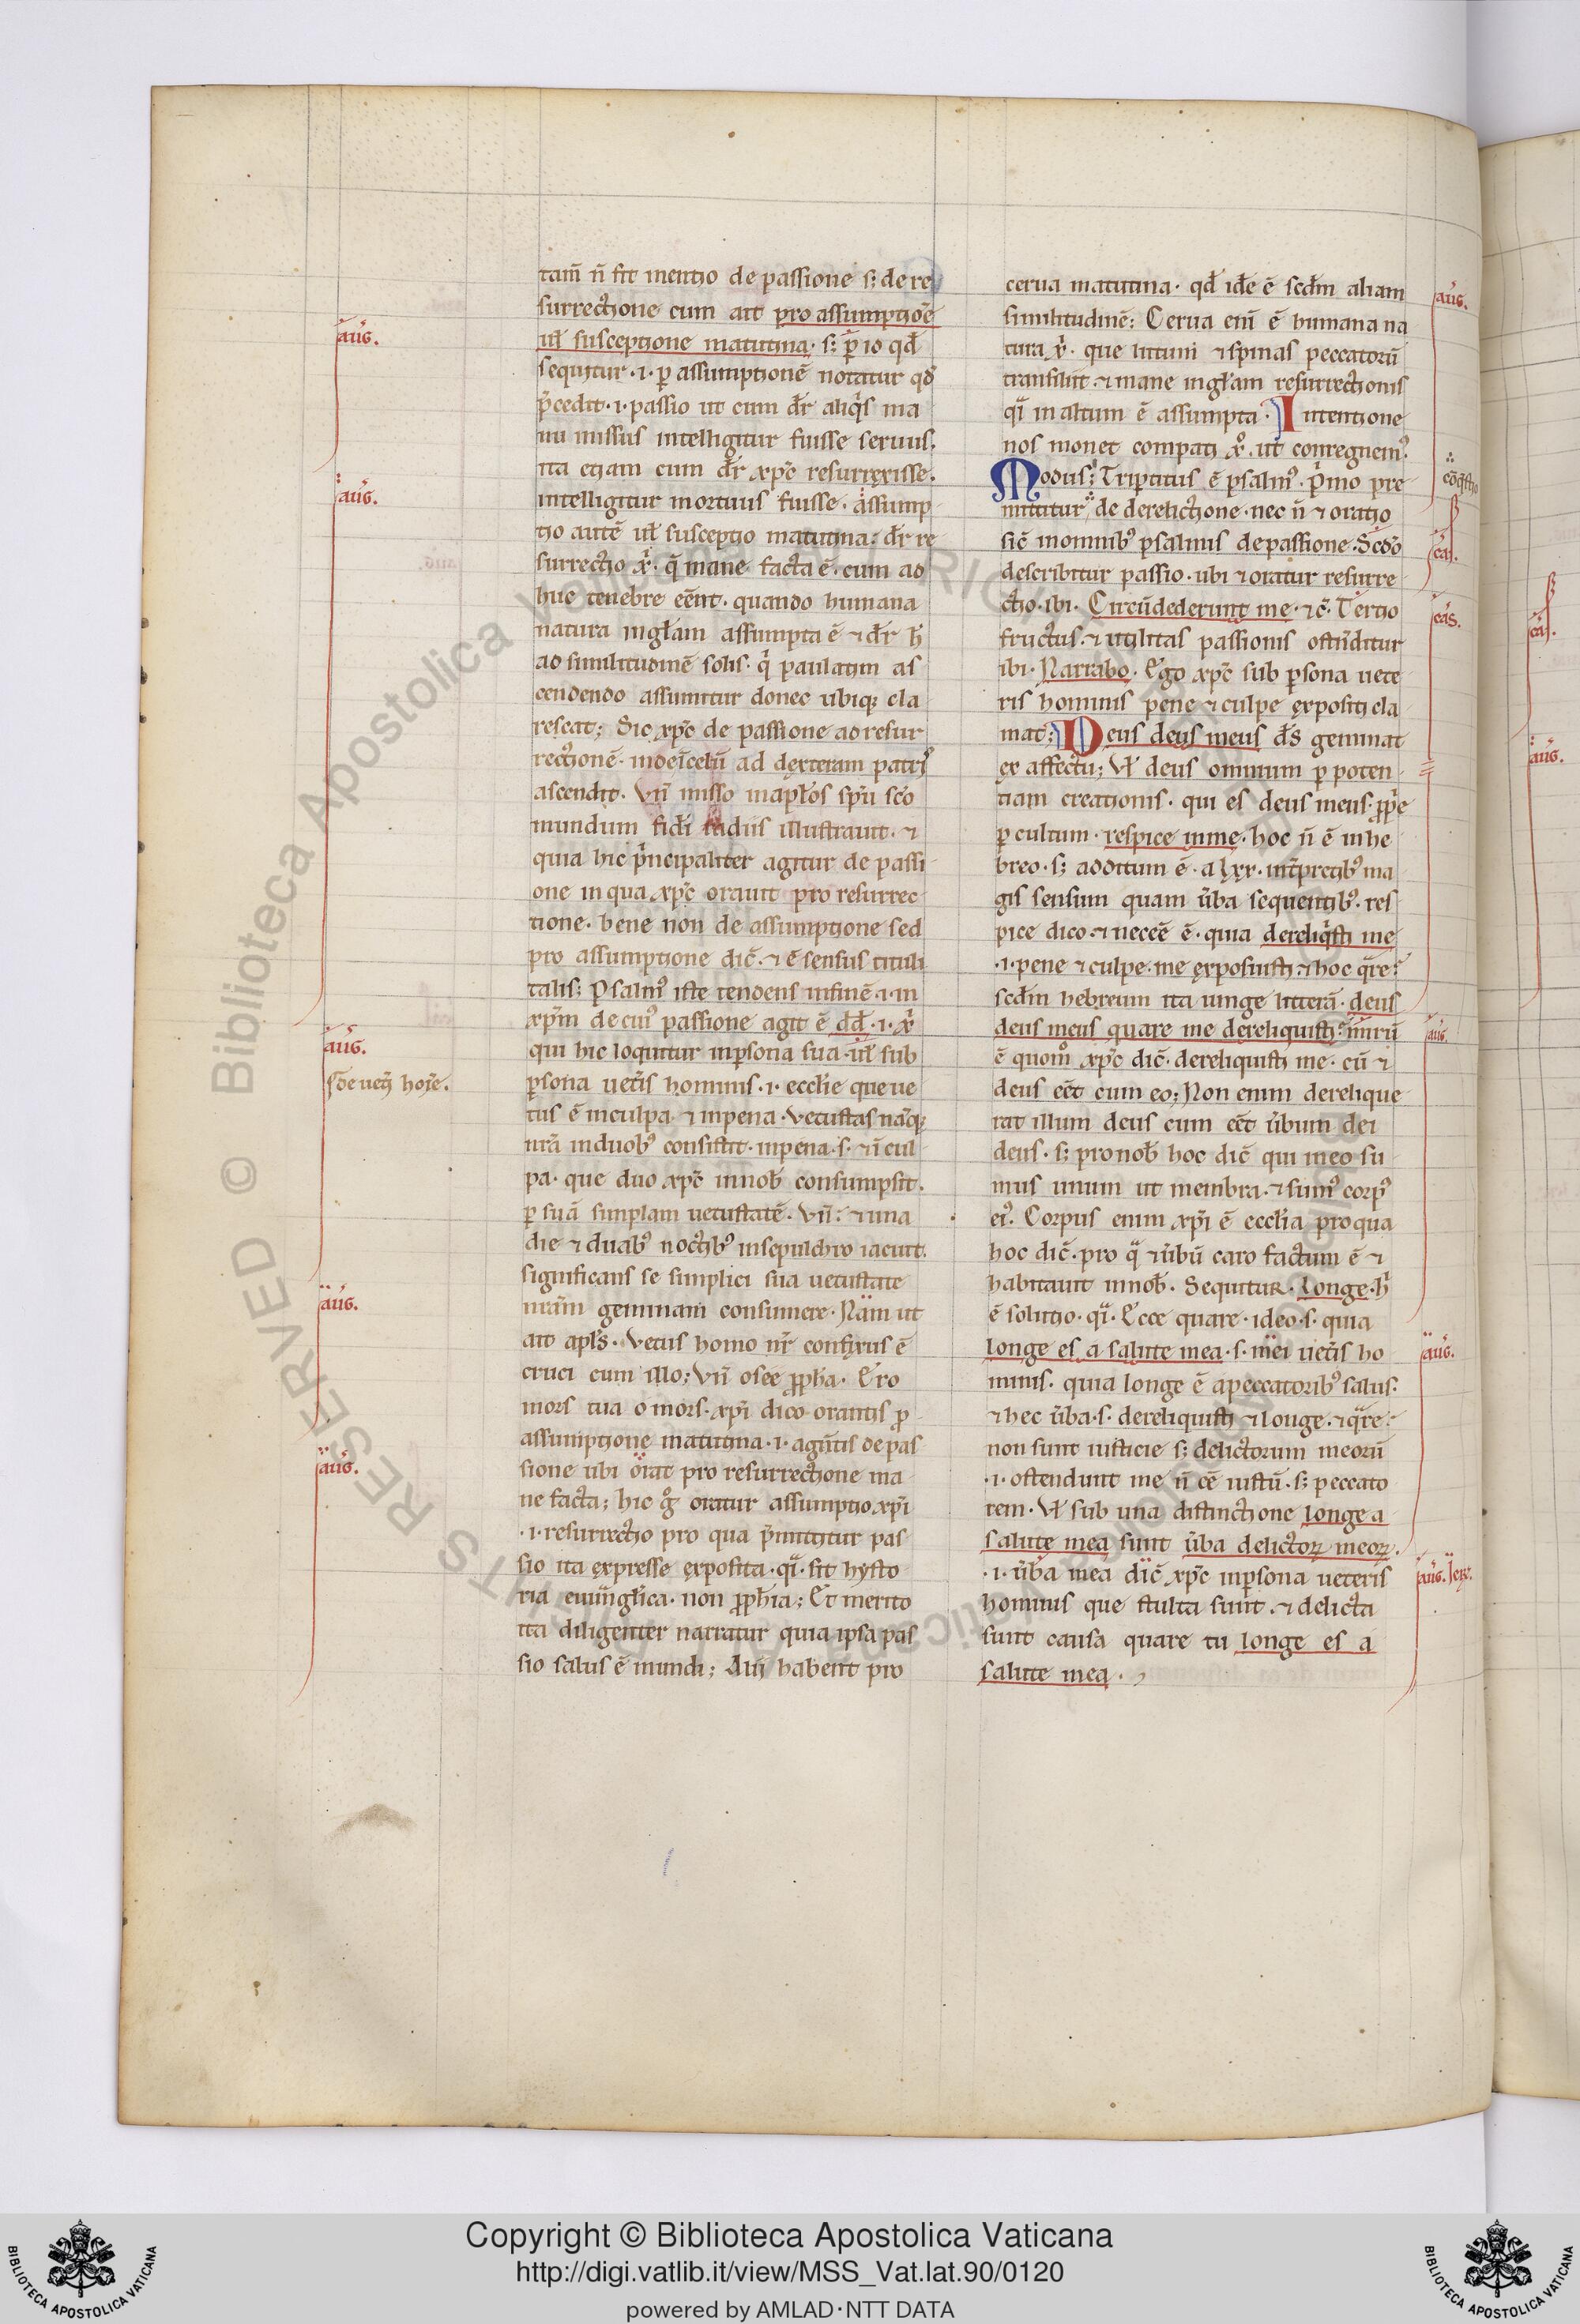 tam̄ n̄ fit mentio de passione s; de re
surrectione cum ait pro assumptiōe
ul̄ susceptione matutina. s; p̄ io qđ
sequitur .i. p assumptionē notatur qđ
p̄cedit .i. passio ut cum dr̄ aliq̇s ma
nu missus intelligitur fuisse seruus;
ita etiam cum dr̄ xp̄c resurrexisse.
intelligitur mortuus fuisse. assump
tio autē ul̄ susceptio matutina: dr̄ re
surrectio x̄. q̄ mane facta ē. cum ad
huc tenebre eēnt. quando humana
natura in gl̄am assumpta ē ⁊ dr̄ h̄
ad similitudinē solis. q̇ paulatim as
cendendo assumitur donec ubiq; cla
rescat; Sic xp̄c de passione ad resur
rectionē. inde īcelū ad dexteram patrꝰ
ascendit. Vn̄ misso in apl̄os sp̄u sc̄o
mundum fidei radiis illustrauit. ⁊
quia hic p̄ncipaliter agitur de passi
one in qua xp̄c orauit pro resurrec
tione. bene non de assumptione sed
pro assumptione dic̄. ⁊ ē sensus tituli
talis; Psalmꝰ iste tendens in finē .i. in
xp̄m de cuiꝰ passione agit ē dd̄ .i. x̄
qui hic loquitur in p̱sona sua. ul̄ sub
p̱sona uet̄is hominis .i. eccl̄ie que ue
tus ē in culpa ⁊ in pena. Vetustas nāq;
nr̄a in duobꝰ consistit. in pena .s. ⁊ ī cul
pa. que duo xp̄c in nob̄ consumpsit.
p̱ suā simplam uetustatē. Vn̄: ⁊ una
die ⁊ duabꝰ noctibꝰ in sepulchro iacuit.
significans se simplici sua uetustate
nr̄am geminam consumere. Nam ut
ait apl̄s. Vetus homo nr̄ confixus ē
cruci cum illo; Vn̄ osee pp̄ha. Ero
mors tua o mors. xp̄i dico orantis p̱
assumptione matutina .i. agn̄tis de pas
sione ubi orat pro resurrectione ma
ne facta; hic g̊ oratur assumptio xp̄i
.i. resurrectio pro qua p̄mittitur pas
sio ita expresse exposita. q̄i. sit hysto
ria euuāgl̄ica. non pp̄hia; Et merito
ita diligenter narratur quia ipsa pas
sio salus ē mundi; Alii habent pro
aug̃.
aug̃.
aug̃.
de uetꝰ hoīe.
aug̃.
aug̃.
cerua matutina. qđ idē ē scđm aliam
similitudinē; Cerua enī ē humana na
tura x̄. que lutum ⁊ spinas peccatorū
transiliit. ⁊ mane in gl̄am resurrectionis
q̄i in altum ē assumpta. Intentione
nos monet compati x̊. ut conregnemꝰ.
Modus; Tripertitus ē psalmꝰ. p̄mo pre
mittitur de derelictione. nec n̄ ⁊ oratio
sic̄ in omnibꝰ psalmis de passione. Scđo
describitur passio. ubi ⁊ oratur resurre
ctio. ibi. Circūdederunt me. ⁊c̄. Tertio
fructus. ⁊ utilitas passionis ostn̄ditur
ibi. Narrabo. Ego xp̄c sub p̱sona uete
ris hominis pene ⁊ culpe expositi cla
mat; Deus deus meus d̄s geminat
ex affectu; Vl̄ deus omnium p̱ poten
tiam creationis. qui es deus meus. pp̄e
p̱ cultum. respice in me. hoc n̄ ē in he
breo. s; additum ē. a lxx. int̄pretibꝰ ma
gis sensum quam ūba sequentibꝰ. res
pice dico. ⁊ neceē ē. quia dereliq̇sti me
.i. pene ⁊ culpe. me exposuisti. ⁊ hoc q̄re?
scđm hebreum ita iunge litterā. deus
deus meus quare me dereliquisti. mirū
ē quom̊ xp̄c dic̄. dereliquisti me. cū ⁊
deus eēt cum eo; Non enim derelique
rat illum deus cum eēt ūbum dei
deus. s; pro nob̄ hoc dic̄ qui in eo su
mus unum ut membra. ⁊ sumꝰ corpꝰ
eiꝰ. Corpus enim xp̄i ē eccl̄ia pro qua
hoc dic̄. pro q̄ ⁊ ūbū caro factum ē ⁊
habitauit in nob̄. Sequitur. Longe. h̄
ē solutio. q̄i. Ecce quare. ideo .s. quia
longe es a salute mea .s. mei uet̄is ho
minis. quia longe ē a peccatoribꝰ salus.
⁊ hec ūba .s. dereliquisti ⁊ longe. ⁊ q̄re
non sunt iusticie s; delictorum meorū
.i. ostendunt me n̄ eē iustū. s; peccato
rem. Vl̄ sub una distinctione longe a
salute mea sunt ūba delictoꝝ meoꝝ.
.i. ūba mea dic̄ xp̄c in p̱sona ueteris
hominis que stulta sunt. ⁊ delicta
sunt causa quare tu longe es a
salute mea.
aug̃.
cas̃.
cas̃.
aug̃.
aug̃.
aug̃. Ier̃.
cas̃.
aug̃.
Copyright © Biblioteca Apostolica Vaticana
http://digi.vatlib.it/view/MSS_Vat.lat.90/0120
powered by AMLAD·NTT DATA
BIBLIOTECA APOSTOLICA VATICANA
BIBLIOTECA APOSTOLICA VATICANA